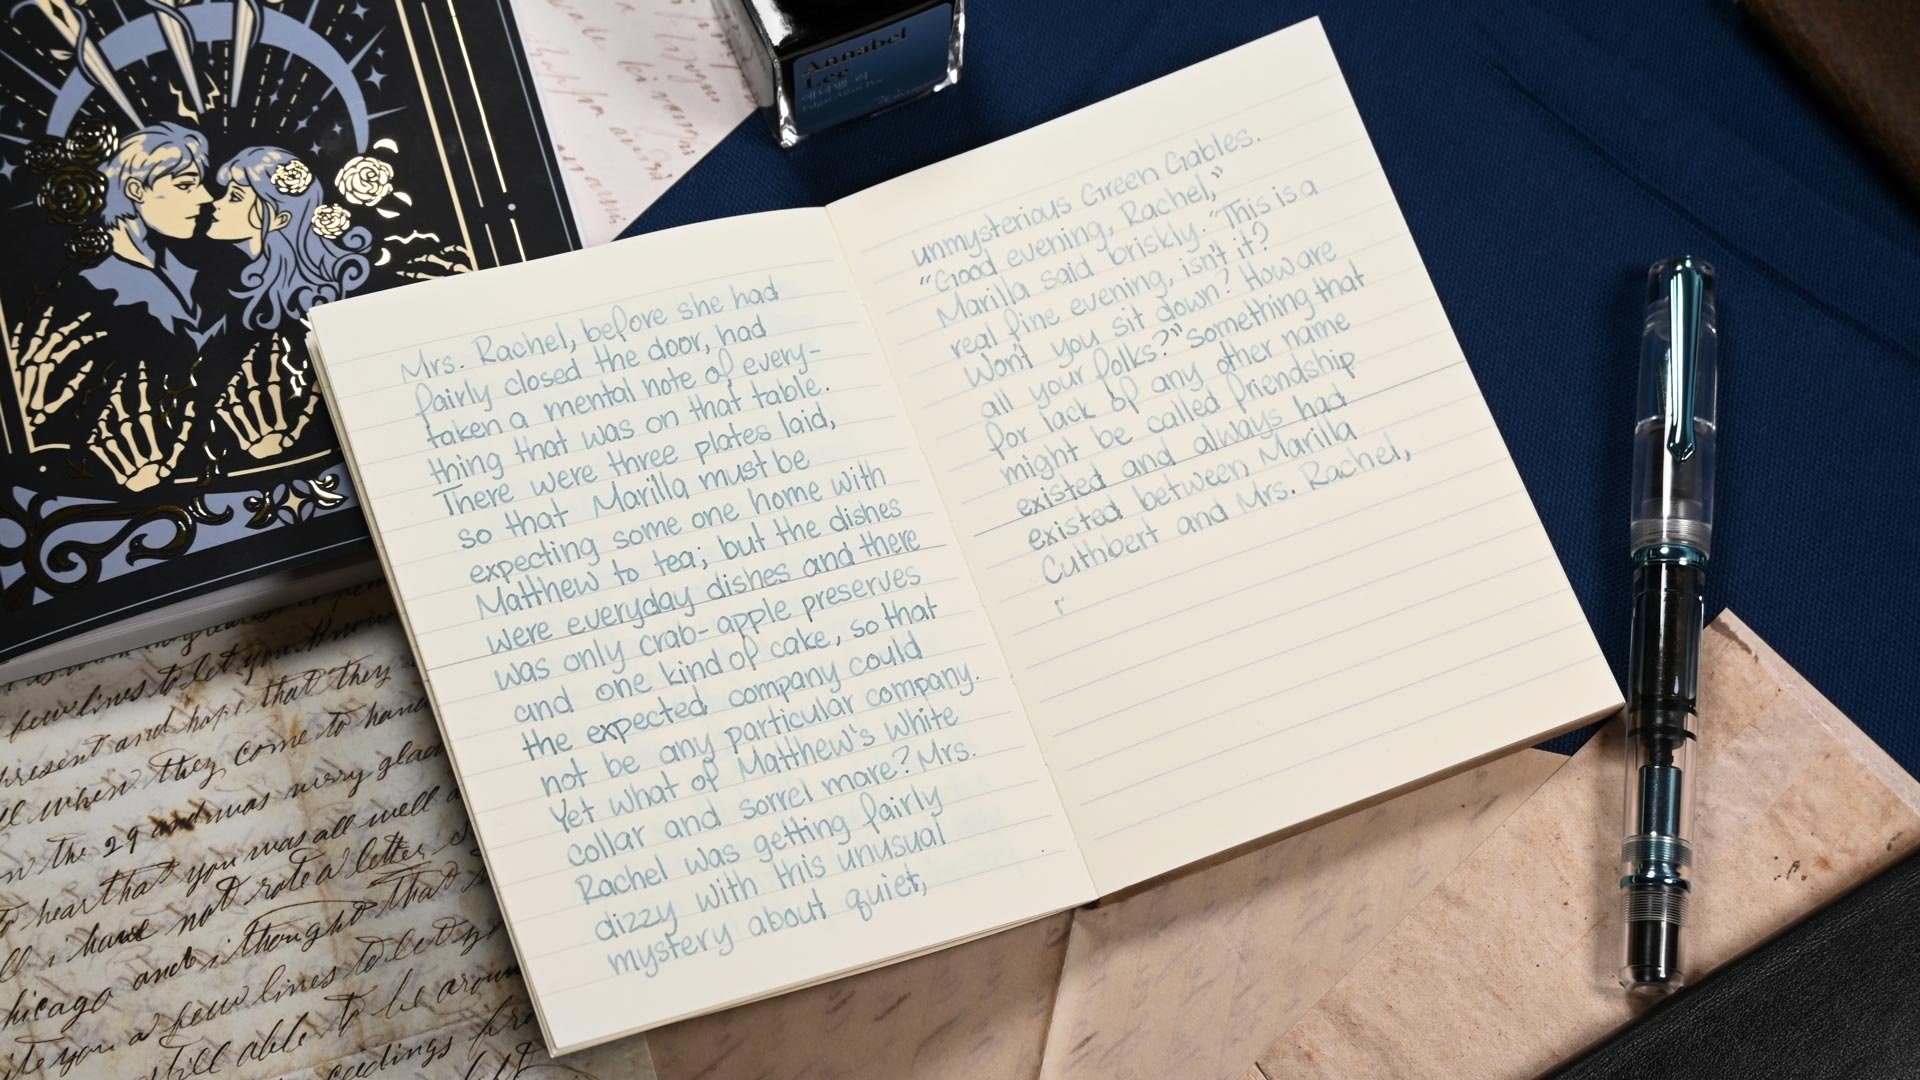 Annabel
Lee
애너벨 리
Edgar Allan Poe
Mrs. Rachel, before she had
fairly closed the door, had
taken a mental note of every-
thing that was on that table.
There were three plates laid,
so that Marilla must be
expecting some one home with
Matthew to tea; but the dishes
were everyday dishes and there
was only crab-apple preserves
and one kind of cake, so that
the expected company could
not be any particular company.
Yet what of Matthew's white
collar and sorrel mare? Mrs.
Rachel was getting fairly
dizzy with this unusual
mystery about quiet,
unmysterious Green Gables.
"Good evening, Rachel,"
Marilla said briskly. "This is a
real fine evening, isn't it?
Won't you sit down? How are
all your folks?" Something that
for lack of any other name
might be called friendship
existed and always had
existed between Marilla
Cuthbert and Mrs. Rachel,
r
few lines to let you know
present and hope that they
when they come to hand
the 29 and was very glad
to hear that you was all well
i have not rote a letter
and i thought that
few lines to let
still able to be